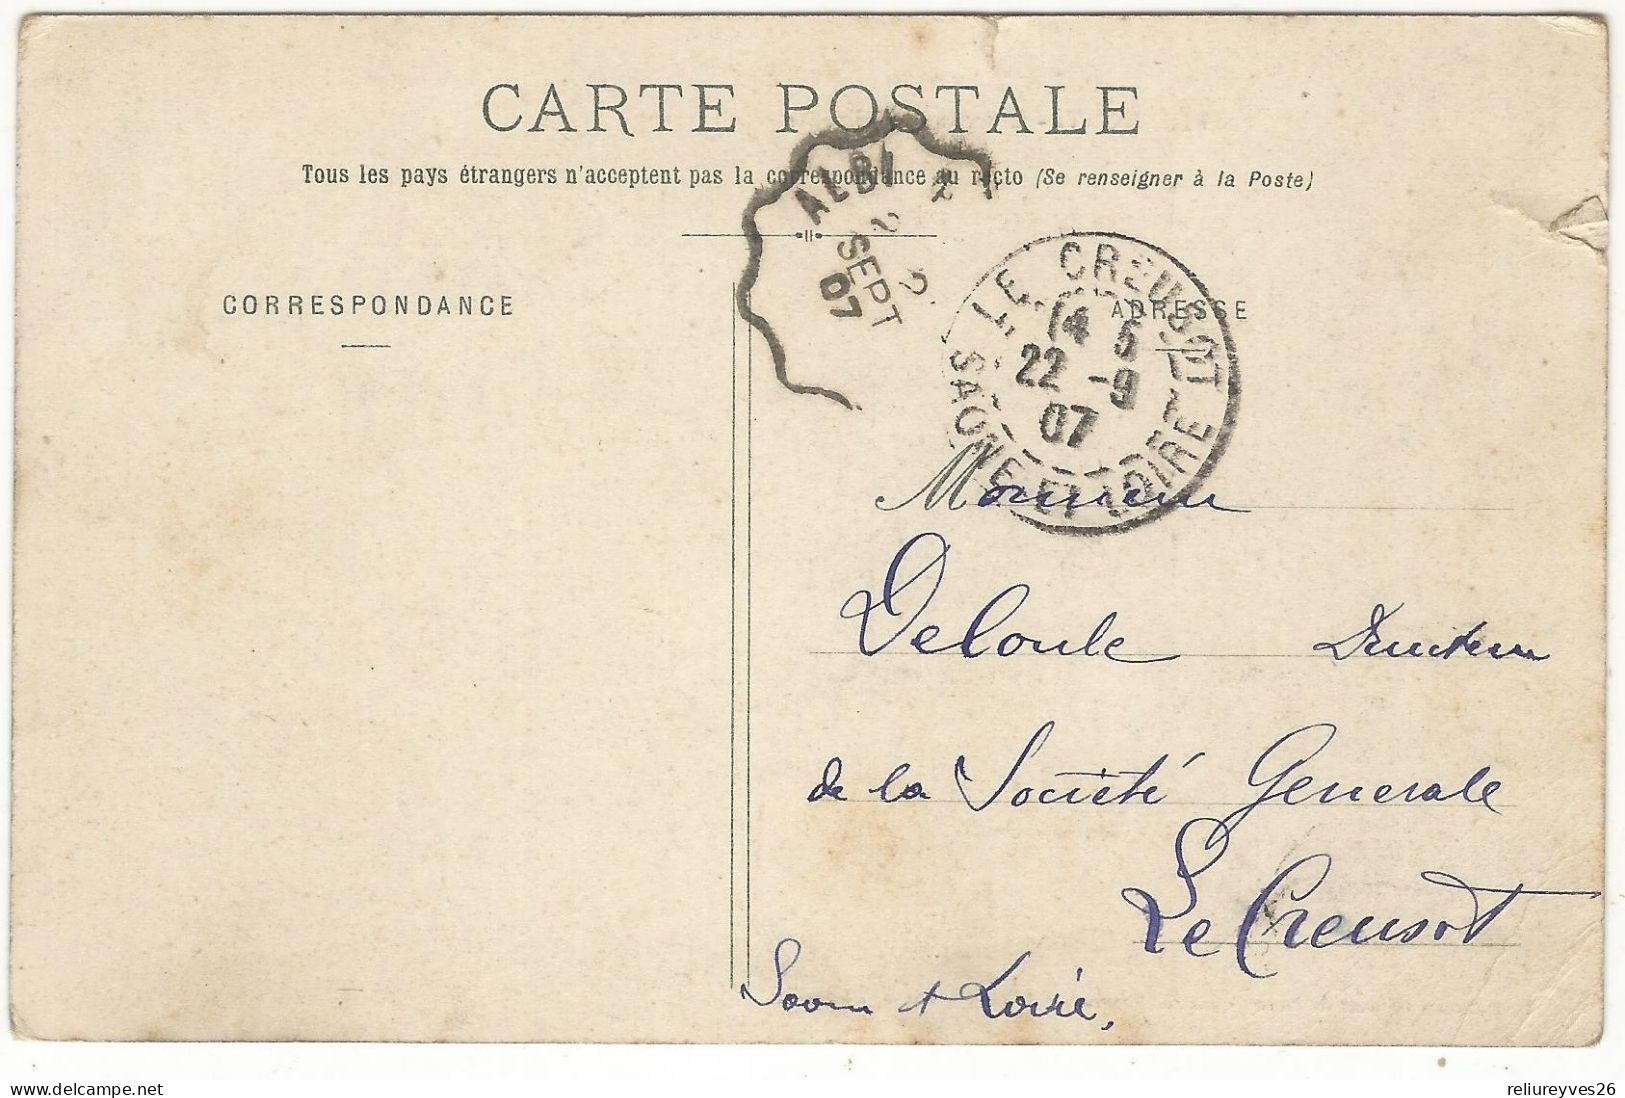 CARTE POSTALE
Tous les pays étrangers n'acceptent pas la correspondance au recto (Se renseigner à la Poste)
ALBI
2 2
SEPT
07
CORRESPONDANCE
ADRESSE
LE CREUSOT
14 5
22 -9
07
SAONE-ET-LOIRE
Monsieur
Deloule Directeur
de la Société Generale
Le Creusot
Saone et Loire,
delcampe.net
reliureyves26